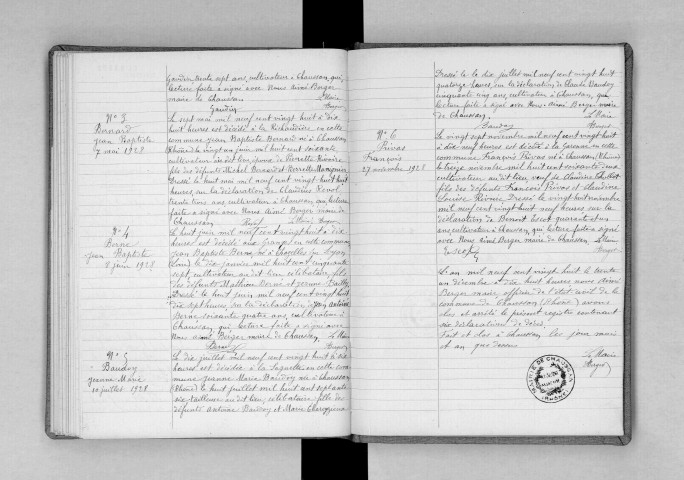 Gaudin trente sept ans, cultivateur à Chaussan, qui,
lecture faite a signé avec Nous Aimé Berger
maire de Chaussan Le Maire
Gaudin Berger
N° 3
Bernard
Jean Baptiste
7 mai 1928
Le sept mai mil neuf cent vingt huit à dix
huit heures est décédé à la Richaudière en cette
commune Jean Baptiste Bernard né à Chaussan
(Rhône) le vingt un juin mil huit cent soixante
cultivateur au dit lieu époux de Pierrette Rivoire
fils des défunts Michel Bernard et Pierrette
Dressé le huit mai mil neuf cent vingt huit huit
heures, sur la déclaration de Claudius
trente trois ans, cultivateur à Chaussan, qui, lecture
faite a signé avec Nous Aimé Berger maire de
Chaussan Le Maire Berger
N° 4
Berne
Jean Baptiste
8 juin 1928
Le huit juin mil neuf cent vingt huit à dix
heures est décédé aux Granges en cette commune
Jean Baptiste Berne né à
le dix janvier mil huit cent cinquante
sept, cultivateur au dit lieu célibataire fils
des défunts Mathieu Berne et Jeanne
Dressé le huit juin mil neuf cent vingt huit
dix sept heures sur la déclaration de Antoine
Berne soixante quatre ans, cultivateur à
Chaussan, qui, lecture faite a signé avec
Nous Aimé Berger maire de Chaussan. Le Maire
Berne Berger
N° 5
Baudoy
Jeanne Marie
10 juillet 1928
Le dix juillet mil neuf cent vingt huit à dix
heures est décédée à la en cette com
mune Jeanne Marie Baudoy née à Chaussan
(Rhône) le huit juillet mil huit cent septante
six tailleuse au dit lieu, célibataire fille des
défunts Antoine Baudoy et Marie
Dressé le dix juillet mil neuf cent vingt huit
quatorze heures, sur la déclaration de Claude Baudoy
cinquante cinq ans, cultivateur à Chaussan, qui
lecture faite a signé avec Nous Aimé Berger maire
de Chaussan. Le Maire
Baudoy Berger
N° 6
Privas
François
27 novembre 1928
Le vingt sept novembre mil neuf cent vingt huit
à dix neuf heures est décédé à la Garenne en cette
commune François Privas né à Chaussan (Rhône)
le treize novembre mil huit cent soixante deux
cultivateur au dit lieu veuf de Claudine
fils des défunts François Privas et Claudine
Louise Rivoire Dressé le vingt huit novembre
mil neuf cent vingt huit neuf heures sur la
déclaration de Benoit Escot quarante et un
ans cultivateur à Chaussan, qui, lecture faite a signé
avec Nous Aimé Berger maire de Chaussan Le Maire
Escot Berger
L'an mil neuf cent vingt huit le trente
un décembre à dix huit heures nous Aimé
Berger maire, officier de l'état civil de la
commune de Chaussan (Rhône) avons
clos et arrêté le présent registre contenant
six déclarations de décès.
Fait et clos à Chaussan les jour mois
et an que dessus
Le Maire
Berger
MAIRIE DE CHAUSSAN
(RHÔNE)